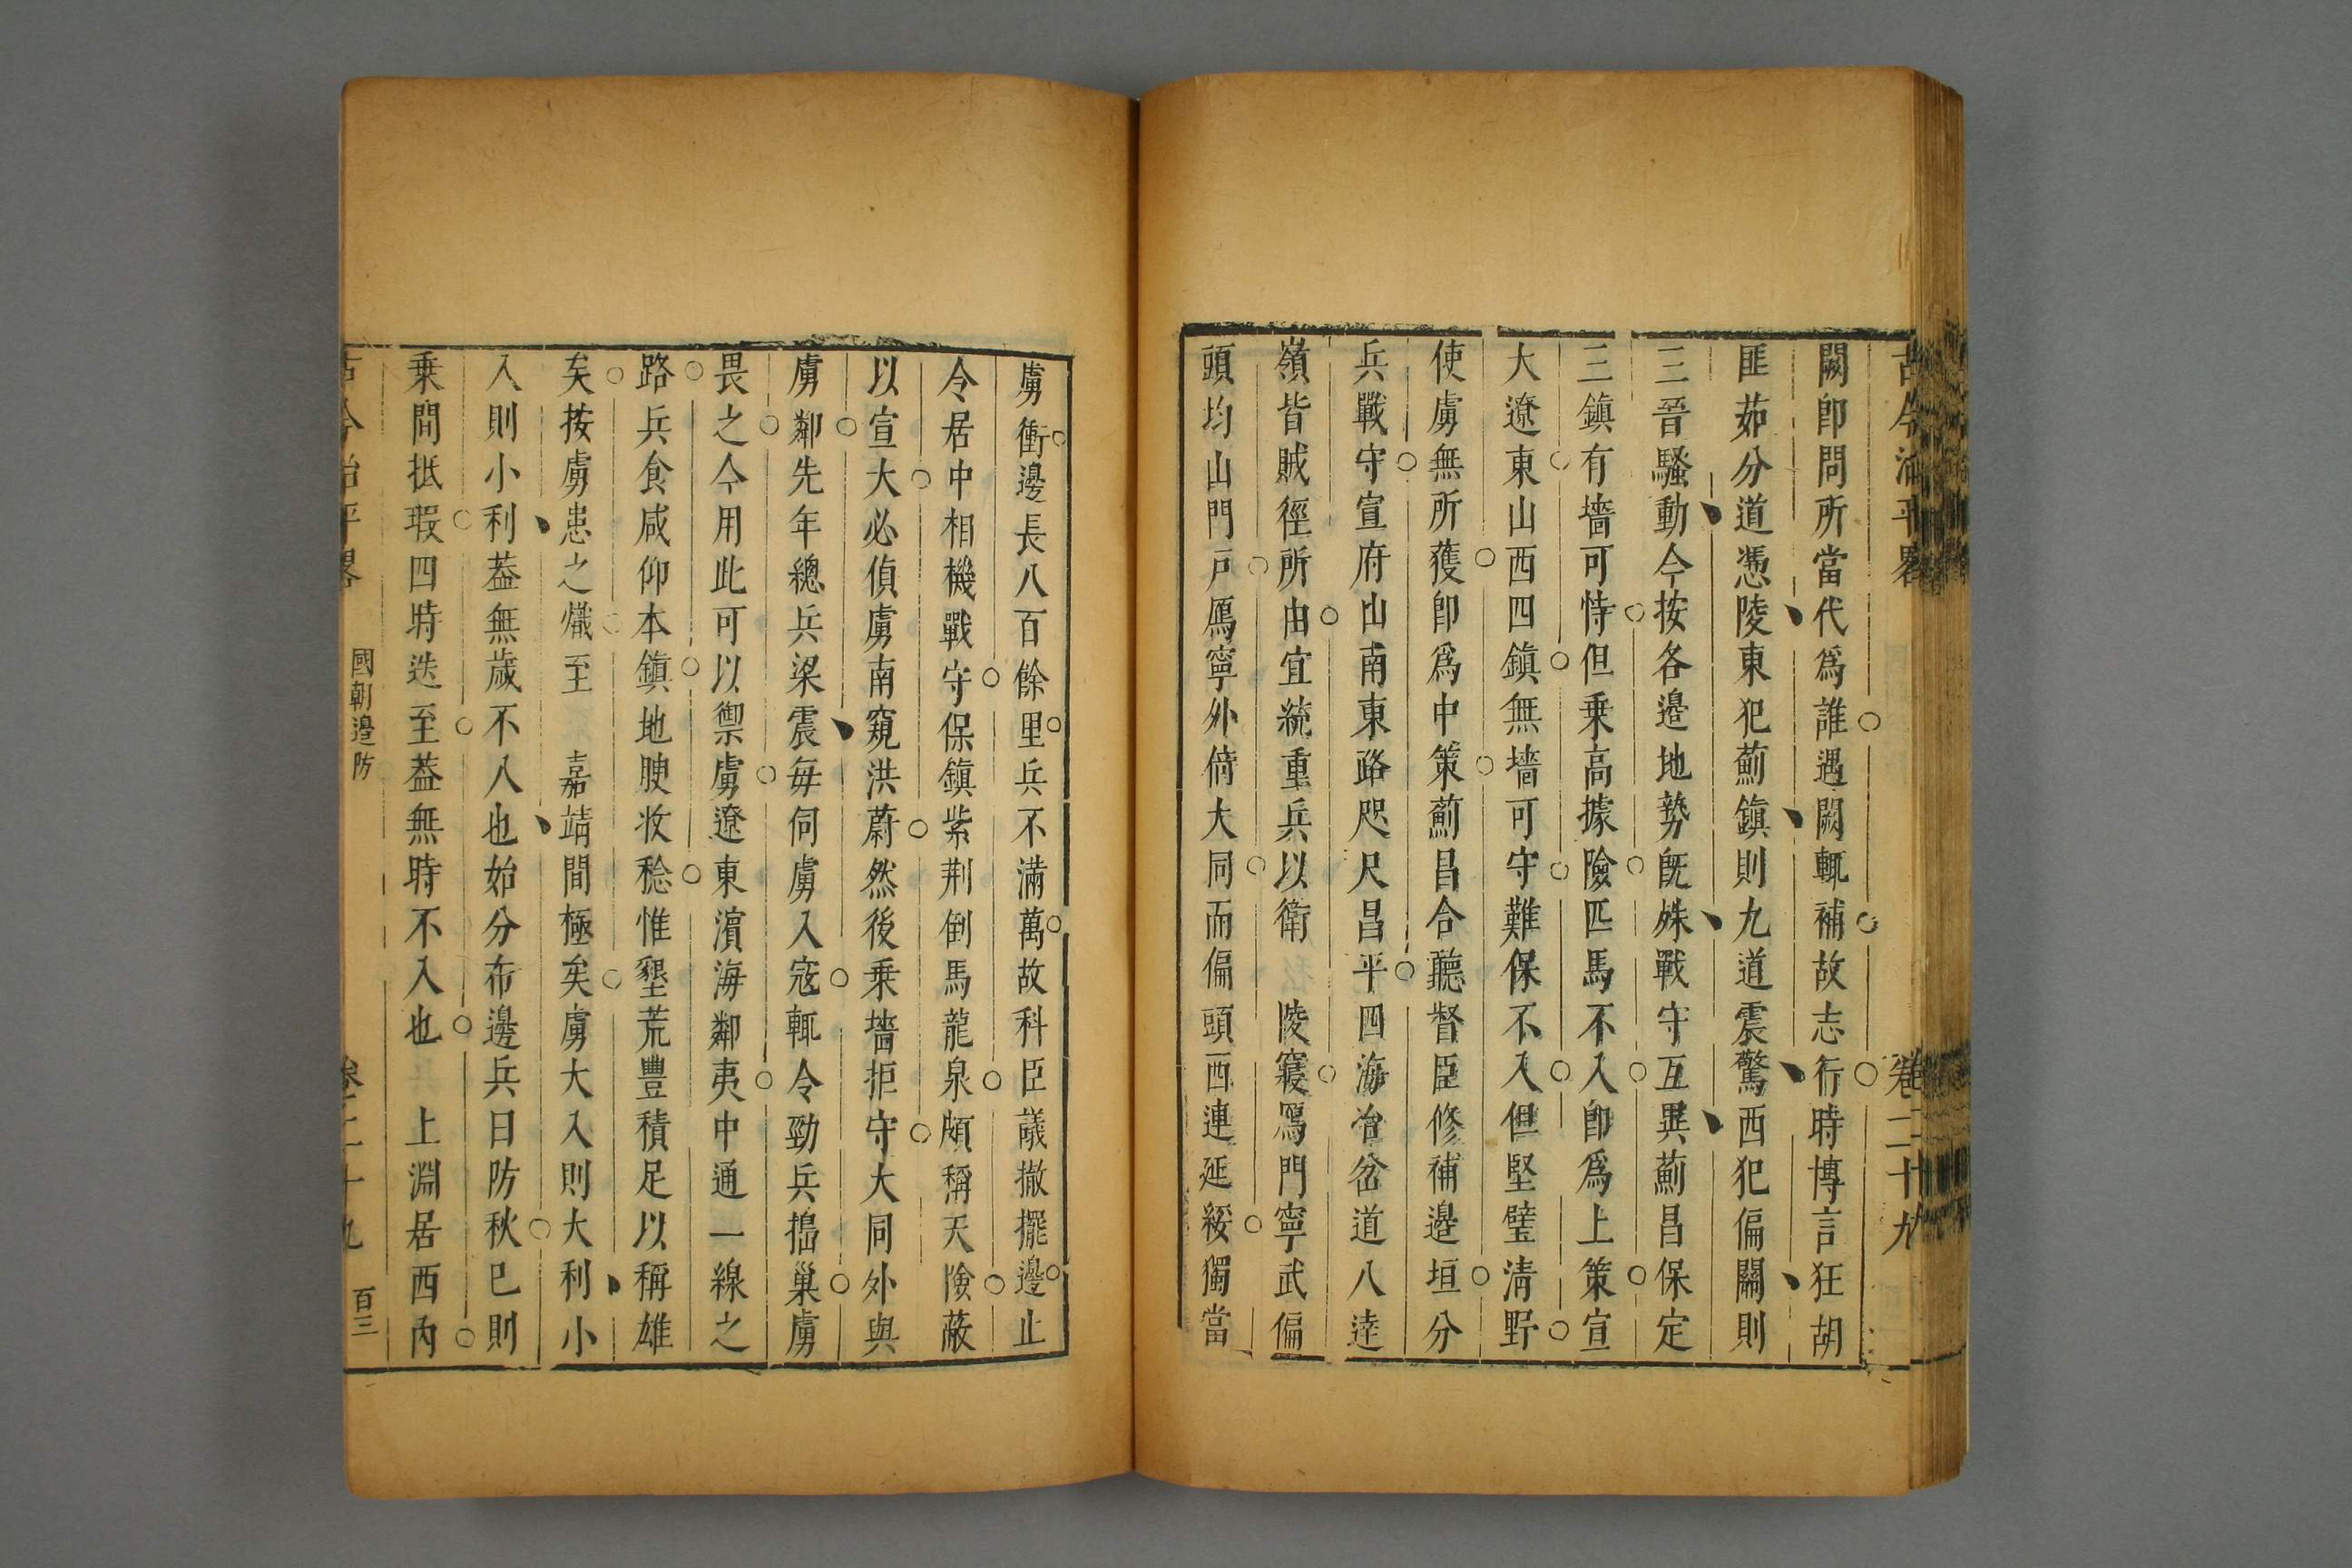 古今治平畧 卷二十九
闕卽問所當代爲誰遇闕輒補故志行時博言狂胡
匪茹分道憑陵東犯薊鎮則九道震驚西犯偏關則
三晉騷動今按各邉地勢旣殊戰守互異薊昌保定
三鎮有墻可恃但乗高據險匹馬不入卽爲上策宣
大遼東山西四鎮無墻可守難保不入但堅璧清野
使虜無所獲卽爲中策薊昌合聽督臣修補邉垣分
兵戰守宣府山南東路咫尺昌平四海冶岔道八逹
嶺皆賊徑所由宜統重兵以衛 陵寢鴈門寧武偏
頭均山門戸鴈寧外倚大同而偏頭西連延綏獨當
虜衝邊長八百餘里兵不滿萬故科臣議撤擺邊止
令居中相機戰守保鎮紫荆倒馬龍泉頗稱天險蔽
以宣大必偵虜南窺洪蔚然後乗墻拒守大同外與
虜鄰先年總兵梁震每伺虜入寇輒令勁兵搗巢虜
畏之今用此可以禦虜遼東濵海鄰夷中通一線之
路兵食咸仰本鎮地腴收稔惟墾荒豐積足以稱雄
矣按虜患之熾至 嘉靖間極矣虜大入則大利小
入則小利葢無歲不入也始分布邊兵曰防秋已則
乗間抵瑕四時迭至葢無時不入也 上淵居西内
古今治平畧 國朝邉防 卷二十九 百三